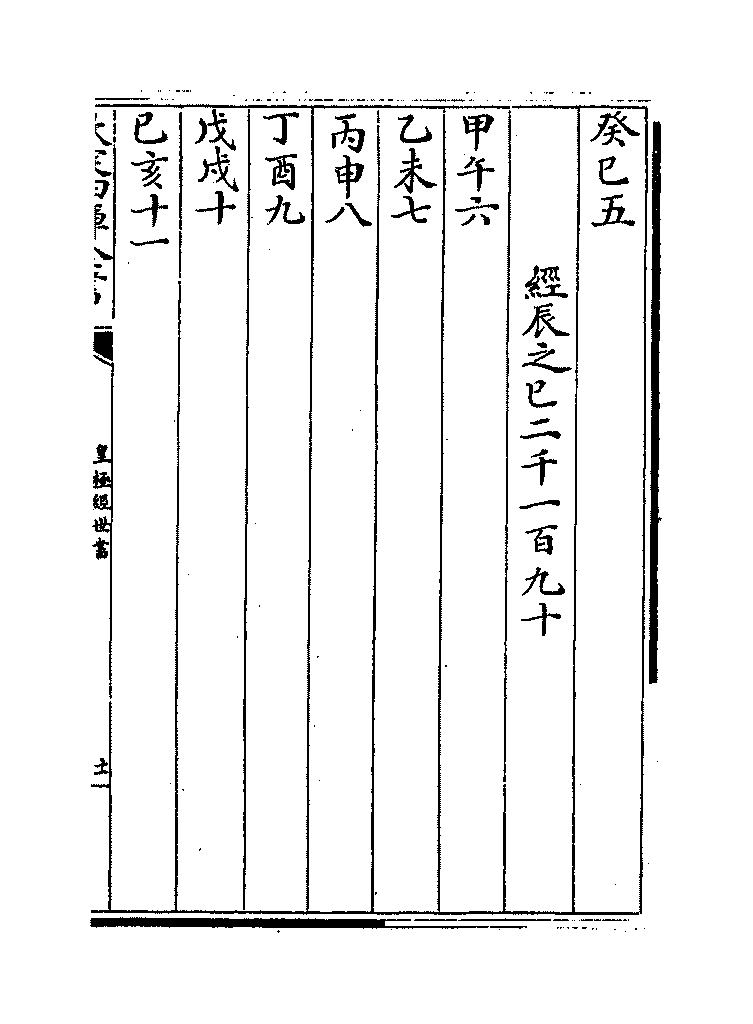 癸巳五
經辰之巳二千一百九十
甲午六
乙未七
丙申八
丁酉九
戊戌十
己亥十一
皇極經世書
十一